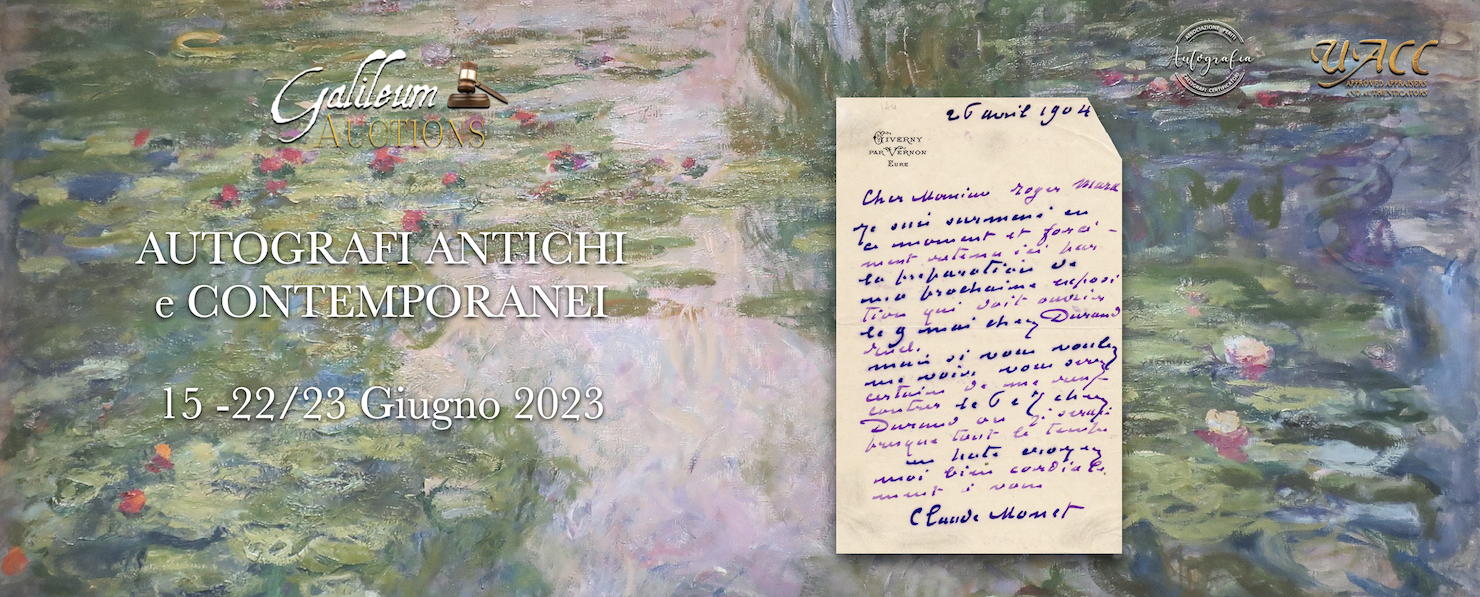 Galileum
AUCTIONS
AUTOGRAFI ANTICHI
e CONTEMPORANEI
15 -22/23 Giugno 2023
ASSOCIAZIONE PERITI
Autografia
AUTOGRAFI CERTIFICATORI
UACC
APPROVED APPRAISERS
AND AUTHENTICATORS
26 avril 1904
GIVERNY
PAR VERNON
EURE
Cher Monsieur Roger Marx
Je suis surmené en
ce moment et forcé-
ment retenu ici par
la préparation de
ma prochaine exposi
tion qui doit ouvrir
le 9 mai chez Durand
ruel.
mais si vous voulez
me voir, vous serez
certain de me ren
contrer le 6 et 7 chez
Durand où je serai
presque tout le temps
en hate croyez
moi bien cordiale
ment à vous
Claude Monet